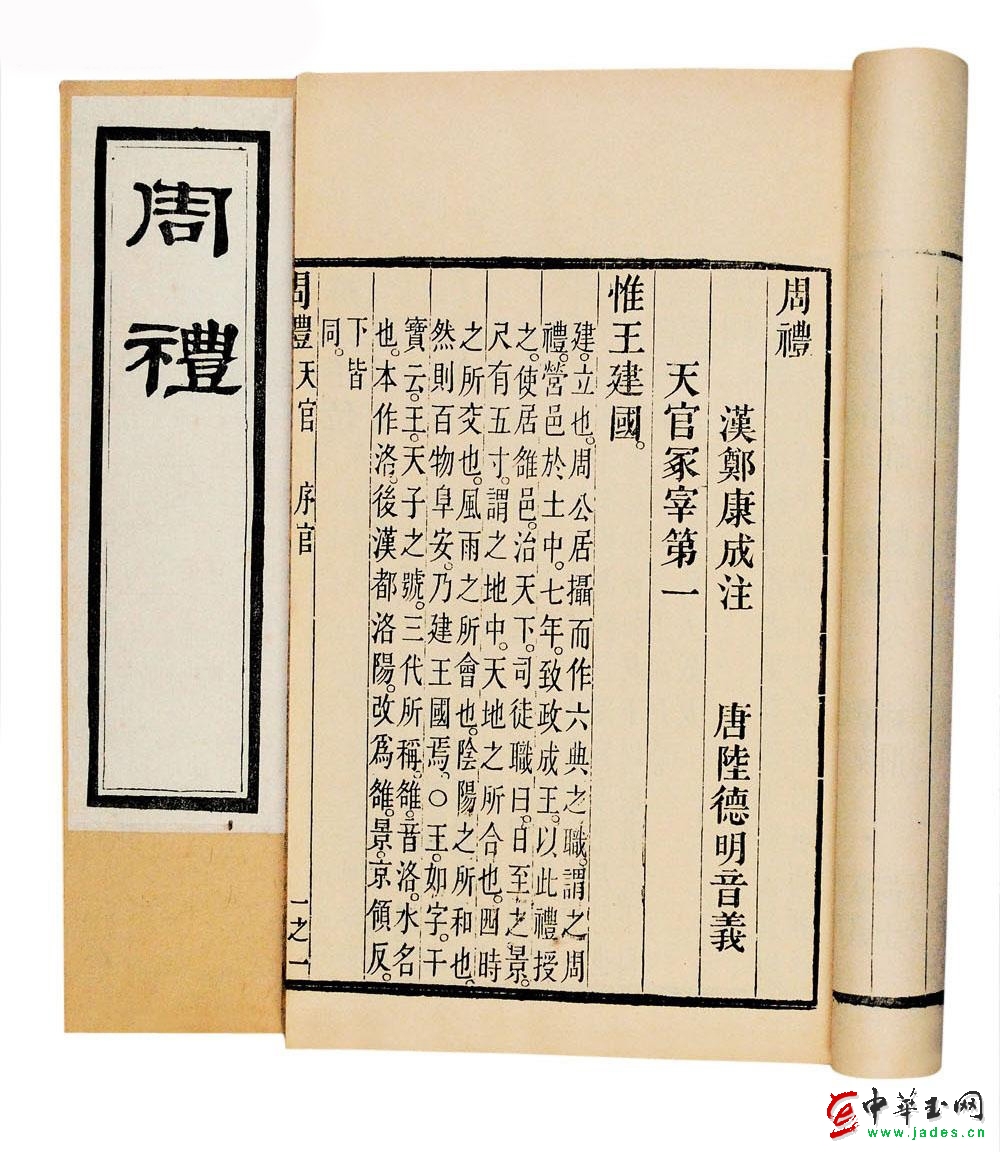 周禮
周禮
漢鄭康成注 唐陸德明音義
天官冢宰第一
惟王建國。
建。立也。周公居攝而作六典之職。謂之周
禮。營邑於土中。七年。致政成王。以此禮授
之。使居雒邑。治天下。司徒職曰。日至之景。
尺有五寸。謂之地中。天地之所合也。四時
之所交也。風雨之所會也。陰陽之所和也。
然則百物阜安。乃建王國焉。〇王。如字。干
寶云。王。天子之號。三代所稱。雒。音洛。水名
也。本作洛。後漢都洛陽。改爲雒。景。京領反。
下皆
同。
周禮 天官 序官 一之一
中華玉网
www.jades.cn